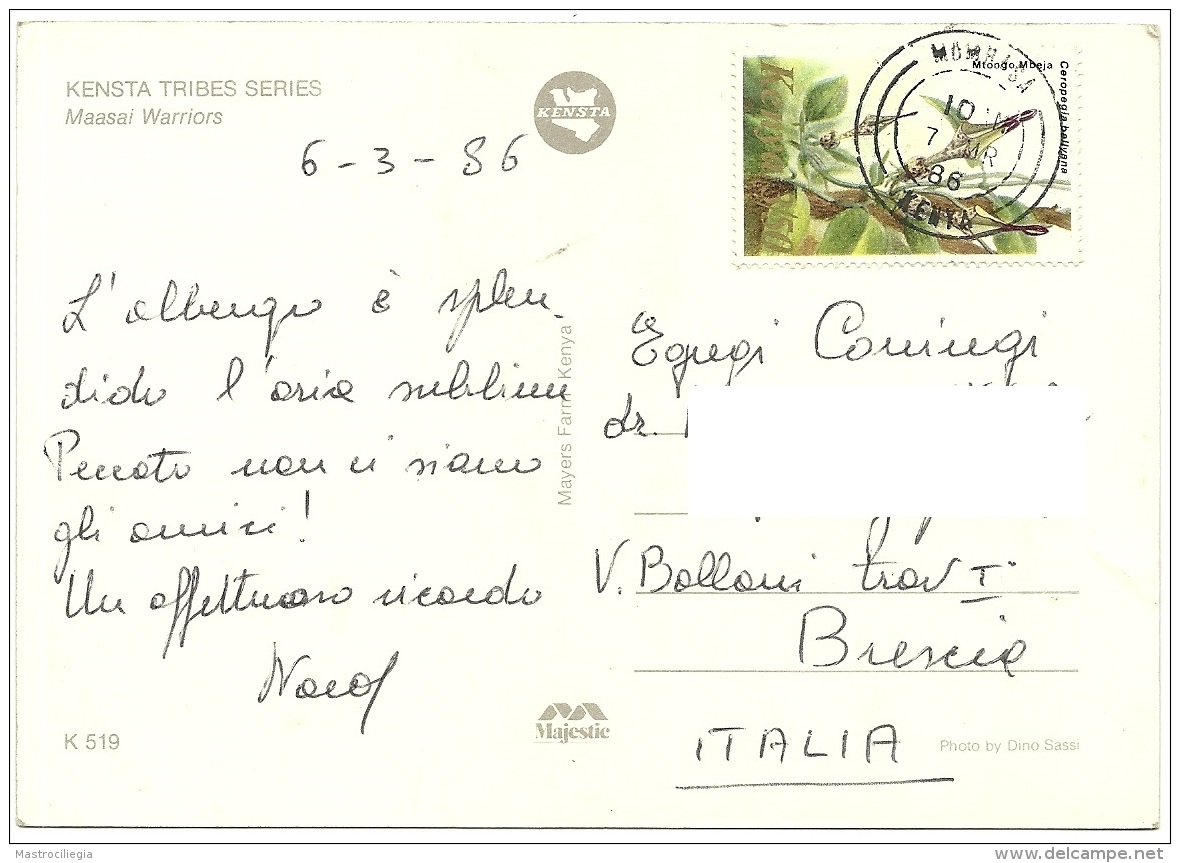 KENSTA TRIBES SERIES
Maasai Warriors
KENSTA
6-3-86
L'albergo è splen-
dido l'aria sublime
Peccato non ci siano
gli amici!
Un affettuoso ricordo
K 519
Mayers Farm Kenya
Majestic
Kenya
Mtongo Mbeja
Ceropegia ballyana
MOMBASA
10
7 MR
86
KENYA
Egregi Coniugi
dr.
V. Balloni trav I°
Brescia
ITALIA
Photo by Dino Sassi
Mastrociliegia
delcampe.net